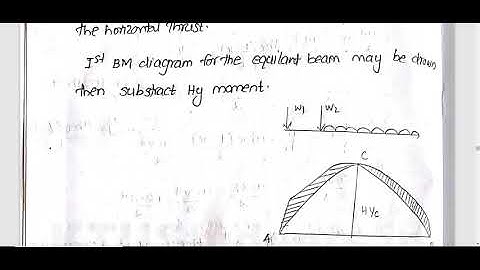 the horizontal thrust.
Ist BM diagram for the equilant beam may be drawn
then substract Hy moment.
W1 W2
C
HYc
A